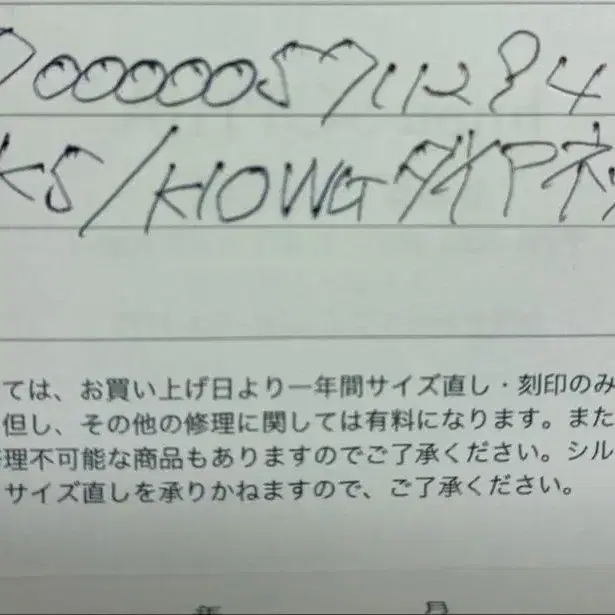 00000571284
K5/K10WGダイヤネ
ては、お買い上げ日より一年間サイズ直し・刻印のみ
但し、その他の修理に関しては有料になります。また
修理不可能な商品もありますのでご了承ください。シル
サイズ直しを承りかねますので、ご了承ください。
年 月